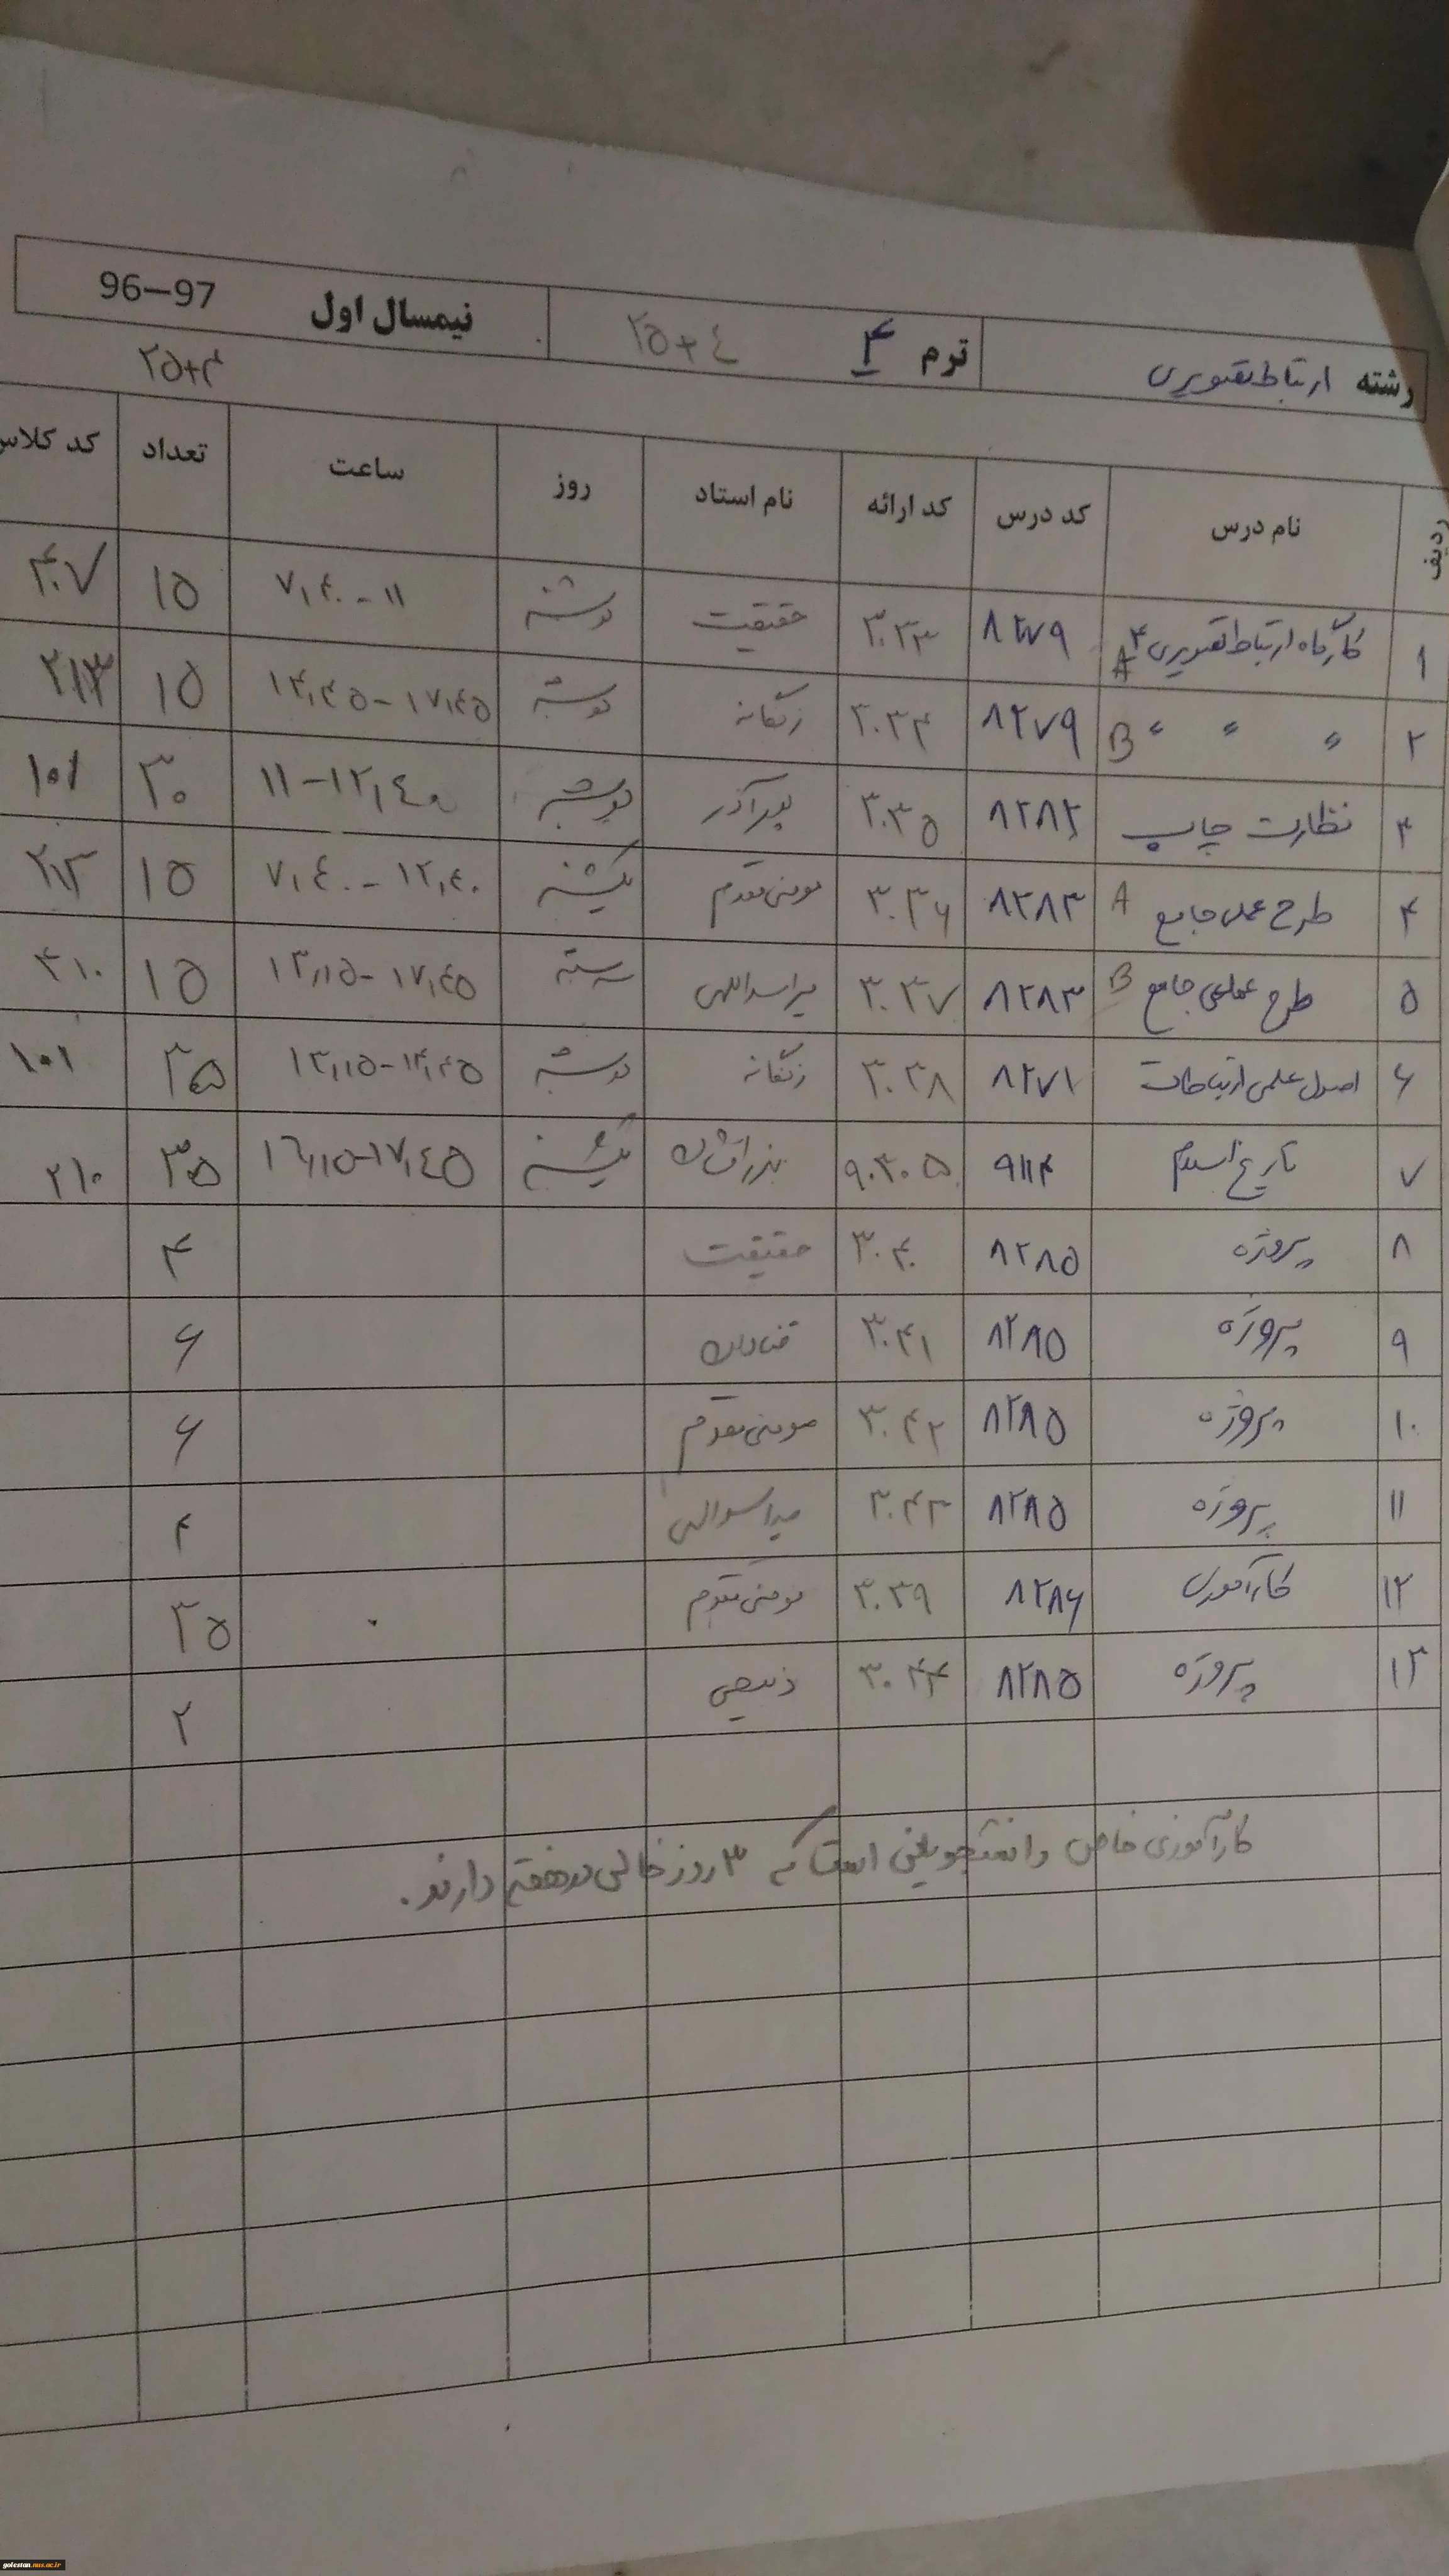 رشته ارتباط تصویری ترم ۴ ۲۵+۴ نیمسال اول 96-97
۲۵+۴
ردیف نام درس کد درس کد ارائه نام استاد روز ساعت تعداد کد کلاس
۱ کارگاه ارتباط تصویری ۳ A ۸۲۷۹ ۳۰۳۳ حقیقت دوشنبه ۷,۴۰-۱۱ ۱۵ ۴۰۷
۲ " " " B ۸۲۷۹ ۳۰۳۴ زنگانه دوشنبه ۱۴,۴۵-۱۷,۴۵ ۱۵ ۲۱۳
۳ نظارت چاپ ۸۲۸۲ ۳۰۳۵ پورآذر دوشنبه ۱۱-۱۲,۴۰ ۳۰ ۱۰۱
۴ طرح عملی جامع A ۸۲۸۳ ۳۰۳۶ مومنی مقدم یکشنبه ۷,۴۰-۱۲,۴۰ ۱۵
۵ طرح عملی جامع B ۸۲۸۳ ۳۰۳۷ میراسداللهی سه شنبه ۱۳,۱۵-۱۷,۴۵ ۱۵ ۴۱۰
۶ اصول علمی ارتباطات ۸۲۷۱ ۳۰۳۸ زنگانه دوشنبه ۱۳,۱۵-۱۴,۴۵ ۳۵ ۱۰۱
۷ تاریخ اسلام ۹۱۱۴ ۹۰۳۰۵ یکشنبه ۱۶,۱۵-۱۷,۴۵ ۳۵ ۲۱۰
۸ پروژه ۸۲۸۵ ۳۰۴۰ حقیقت ۴
۹ پروژه ۸۲۸۵ ۳۰۴۱ قنادان ۶
۱۰ پروژه ۸۲۸۵ ۳۰۴۲ مومنی مقدم ۶
۱۱ پروژه ۸۲۸۵ ۳۰۴۳ میراسداللهی ۴
۱۲ کارآموزی ۸۲۸۶ ۳۰۳۹ مومنی مقدم ۳۵
۱۳ پروژه ۸۲۸۵ ۳۰۴۴ ذبیحی ۲
کارآموزی خاص دانشجویانی است که ۳ روز خالی در هفته دارند.
golestan.nus.ac.ir